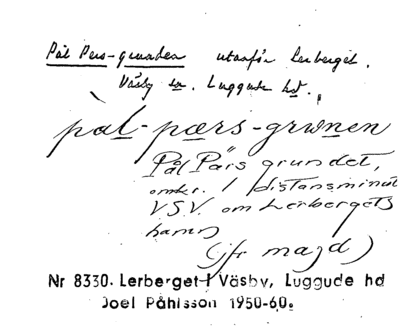 Pål Pers-grunden utanför Lerberget.
Väsby sn. Luggude hd.
pàl-pærs-grɯnen
Pål Pärs grundet,
omkr. 1 distansminut
VSV. om Lerbergets
hamn
(jfr majd)
Nr 8330. Lerberget i Väsby, Luggude hd
Joel Påhlsson 1950-60.